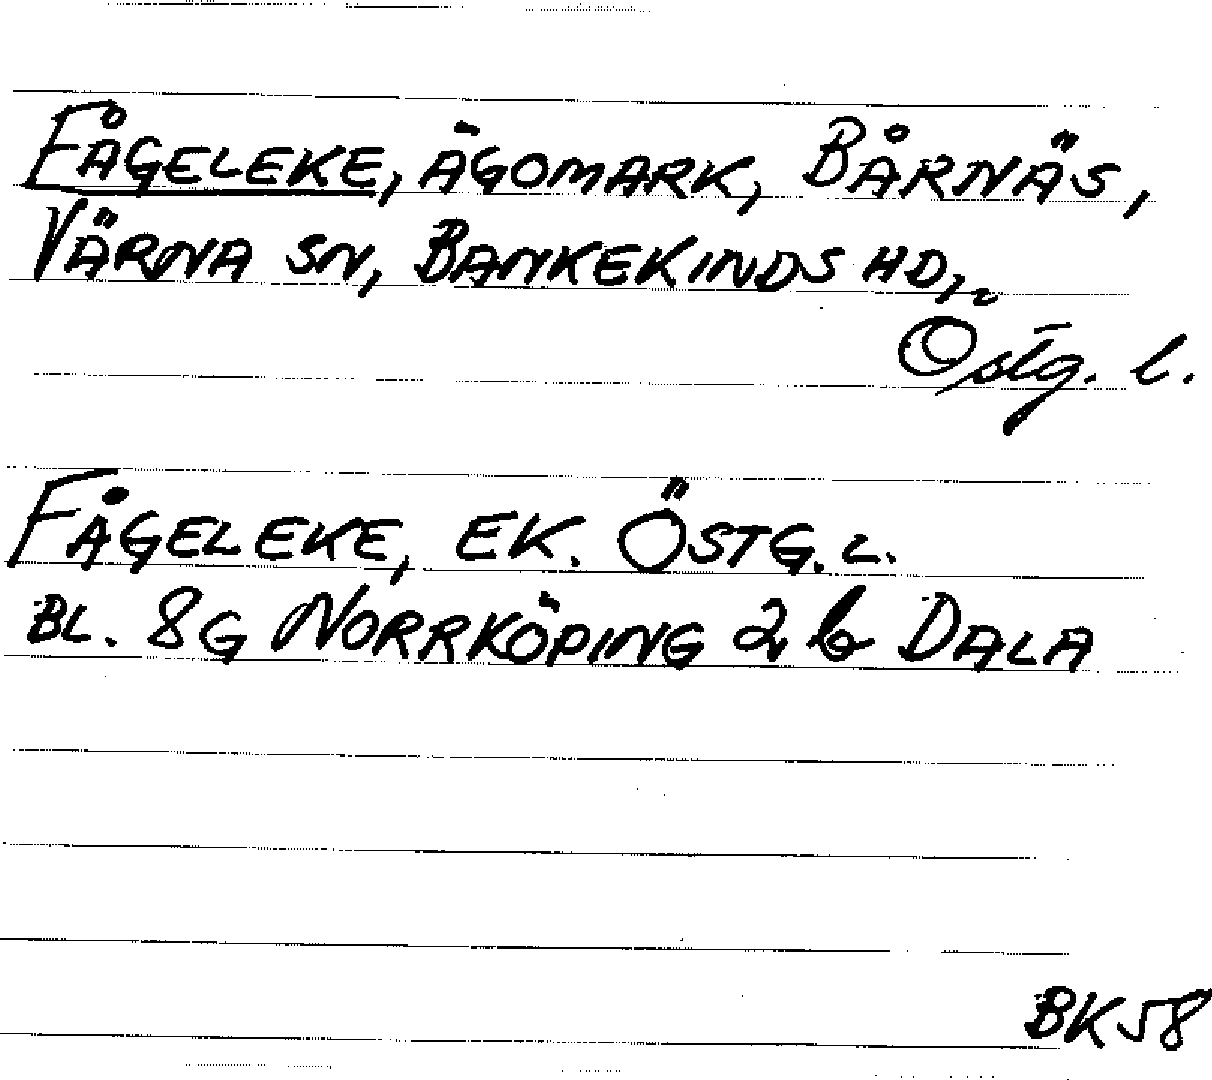 FÅGELEKE, ÄGOMARK, BÅRNÄS,
VÄRNA SN, BANKEKINDS HD,
Östg. l.
FÅGELEKE, EK. ÖSTG. L.
BL. 8G NORRKÖPING 2 b DALA
BK58